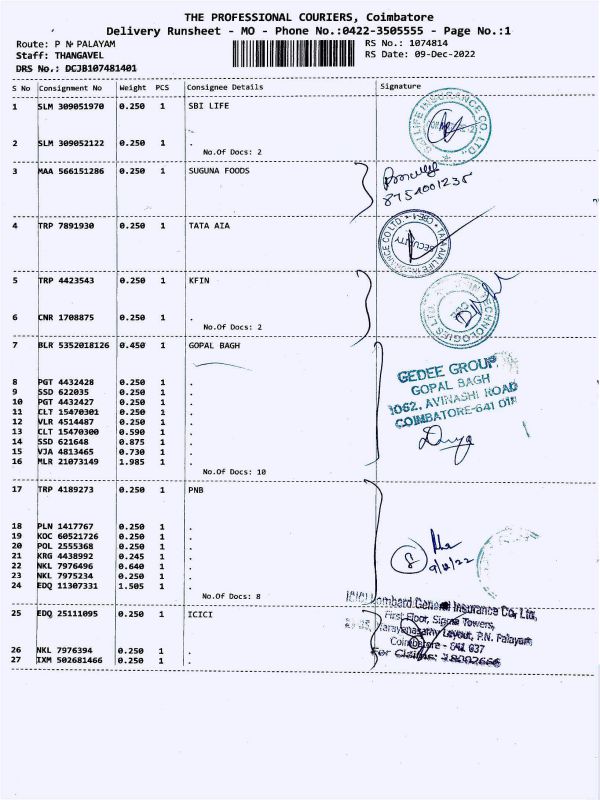 THE PROFESSIONAL COURIERS, Coimbatore
Delivery Runsheet - MO - Phone No.:0422-3505555 - Page No.:1
Route: P N PALAYAM
RS No.: 1074814
Staff: THANGAVEL
RS Date: 09-Dec-2022
DRS No.: DCJB107481401
S No Consignment No Weight PCS Consignee Details Signature
1 SLM 309051970 0.250 1 SBI LIFE
2 SLM 309052122 0.250 1 .
No.Of Docs: 2
3 MAA 566151286 0.250 1 SUGUNA FOODS
4 TRP 7891930 0.250 1 TATA AIA
SECURITY
5 TRP 4423543 0.250 1 KFIN
6 CNR 1708875 0.250 1 .
No.Of Docs: 2
7 BLR 5352018126 0.450 1 GOPAL BAGH
GEDEE GROUP
GOPAL BAGH
1062, AVINASHI ROAD
COIMBATORE-641 018
8 PGT 4432428 0.250 1 .
9 SSD 622035 0.250 1 .
10 PGT 4432427 0.250 1 .
11 CLT 15470301 0.250 1 .
12 VLR 4514487 0.250 1 .
13 CLT 15470300 0.590 1 .
14 SSD 621648 0.875 1 .
15 VJA 4813465 0.730 1 .
16 MLR 21073149 1.985 1 .
No.Of Docs: 10
17 TRP 4189273 0.250 1 PNB
18 PLN 1417767 0.250 1 .
19 KOC 60521726 0.250 1 .
20 POL 2555368 0.250 1 .
21 KRG 4438992 0.245 1 .
22 NKL 7976496 0.640 1 .
23 NKL 7975234 0.250 1 .
24 EDQ 11307331 1.505 1 .
9/12/22
No.Of Docs: 8
25 EDQ 25111095 0.250 1 ICICI
ICICI Lombard General Insurance Co. Ltd,
First Floor, Towers,
Layout, P.N. Palayam
Coimbatore - 641 037
For Claims: 18002666
26 NKL 7976394 0.250 1 .
27 IXM 502681466 0.250 1 .